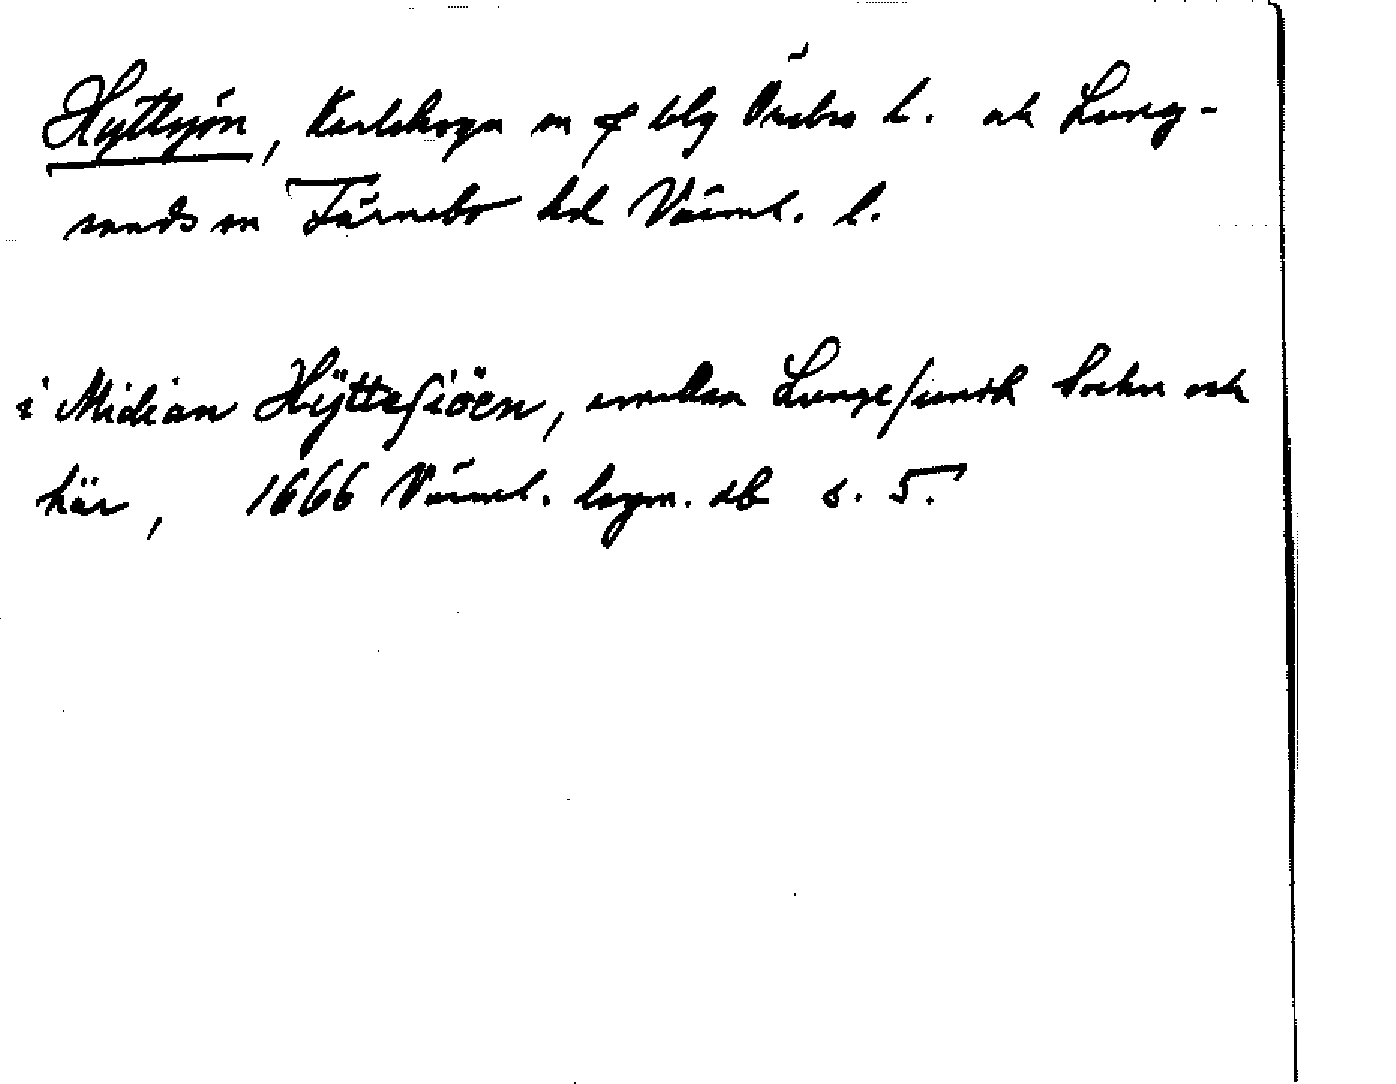 Hyttsjön, Karlskoga sn o f blg Örebro l. och Lung-
sunds sn Färnebo hd Värml. l.
i Midian Hÿttesiöen, emellan Lungesundh Sochn och
här, 1666 Värml. lagm. db s. 5.